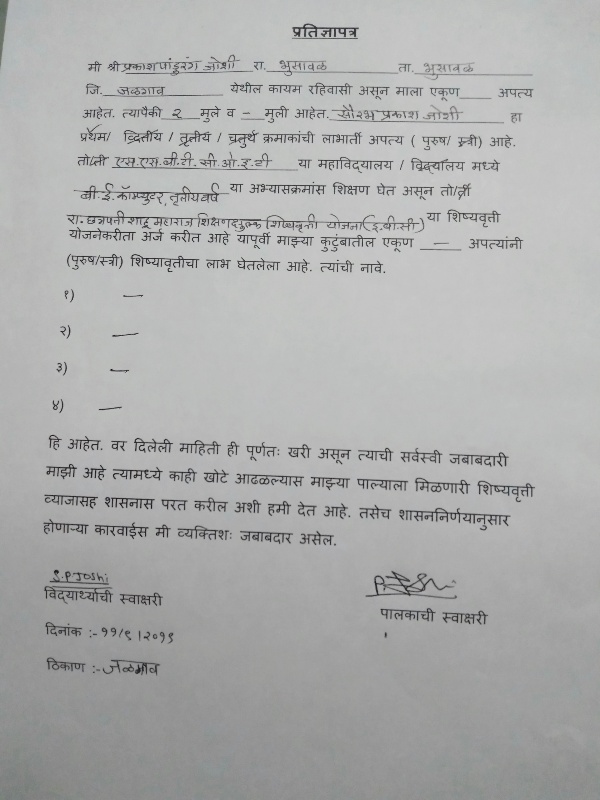 प्रतिज्ञापत्र
मी श्री प्रकाश पांडुरंग जोशी रा. भुसावळ ता. भुसावळ
जि. जळगाव येथील कायम रहिवासी असून माला एकूण ____ अपत्य
आहेत. त्यापैकी २ मुले व - मुली आहेत. सौरभ प्रकाश जोशी हा
प्रथम/ द्वितीय / तृतीय / चतुर्थ क्रमाकांची लाभार्ती अपत्य ( पुरुष/ स्त्री) आहे.
तो/ती एस.एस.जी.टी.सी.ओ.इ.टी या महाविद्यालय / विद्यालय मध्ये
बी.ई.कॉम्प्युटर, तृतीय वर्ष या अभ्यासक्रमांस शिक्षण घेत असून तो/ती
रा. छत्रपती शाहू महाराज शिक्षण शुल्क शिष्यवृत्ती योजना (इ.बी.सी) या शिष्यवृत्ती
योजनेकरीता अर्ज करीत आहे यापूर्वी माझ्या कुटुंबातील एकूण — अपत्यांनी
(पुरुष/स्त्री) शिष्यावृतीचा लाभ घेतलेला आहे. त्यांची नावे.
१) —
२) —
३) —
४) —
हि आहेत. वर दिलेली माहिती ही पूर्णतः खरी असून त्याची सर्वस्वी जबाबदारी
माझी आहे त्यामध्ये काही खोटे आढळल्यास माझ्या पाल्याला मिळणारी शिष्यवृत्ती
व्याजासह शासनास परत करील अशी हमी देत आहे. तसेच शासननिर्णयानुसार
होणाऱ्या कारवाईस मी व्यक्तिशः जबाबदार असेल.
S.P.Joshi
विद्यार्थ्याची स्वाक्षरी
पालकाची स्वाक्षरी
दिनांक :-११/९/२०१९
ठिकाण :-जळगाव